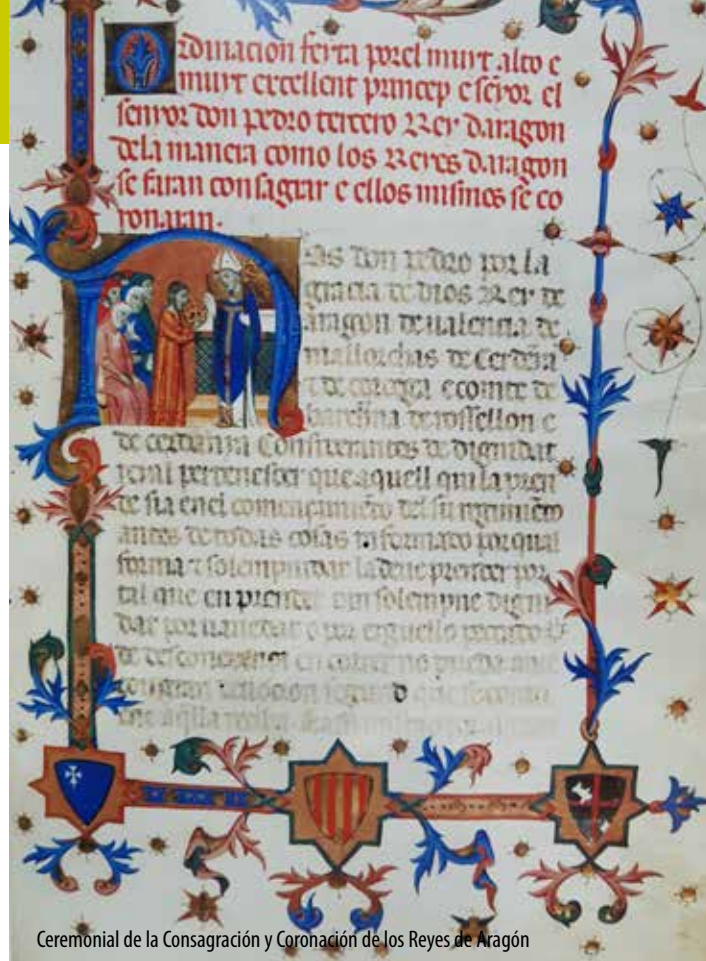 Ordinacion feyta por el muyt alto e
muyt excellent princep e senyor el
senyor don pedro tercero Rey daragon
dela manera como los Reyes daragon
se faran consagrar e ellos mismes se co
ronaran.
Nos don pedro por la
gracia de dios Rey de
aragon de ualencia de
mallorchas de Cerdenya
e comte de
de rossellon e
de cerdanya Considerantes de dignidat
reial pertenescer que aquell qui la pren
de sia enel començamiento del su regimiento
antes de todas cosas informado por qual
forma τ solempnidat la deue prender por
tal que en prender solempne digni
dat por uanedat o por erguello peccado
de
Ceremonial de la Consagración y Coronación de los Reyes de Aragón